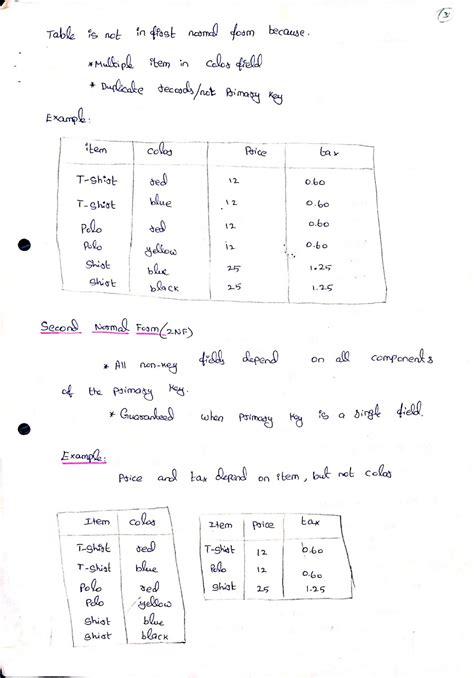 3
Table is not in first normal form because.
* Multiple item in color field
* Duplicate records/not Primary Key
Example:
item color Price tax
T-Shirt red 12 0.60
T-Shirt blue 12 0.60
Polo red 12 0.60
Polo yellow 12 0.60
Shirt blue 25 1.25
Shirt black 25 1.25
Second Normal Form (2NF)
* All non-key fields depend on all components
of the primary key.
* Guaranteed when primary key is a single field.
Example:
Price and tax depend on item, but not color
Item color
T-Shirt red
T-Shirt blue
Polo red
Polo yellow
Shirt blue
Shirt black
Item Price tax
T-Shirt 12 0.60
Polo 12 0.60
Shirt 25 1.25